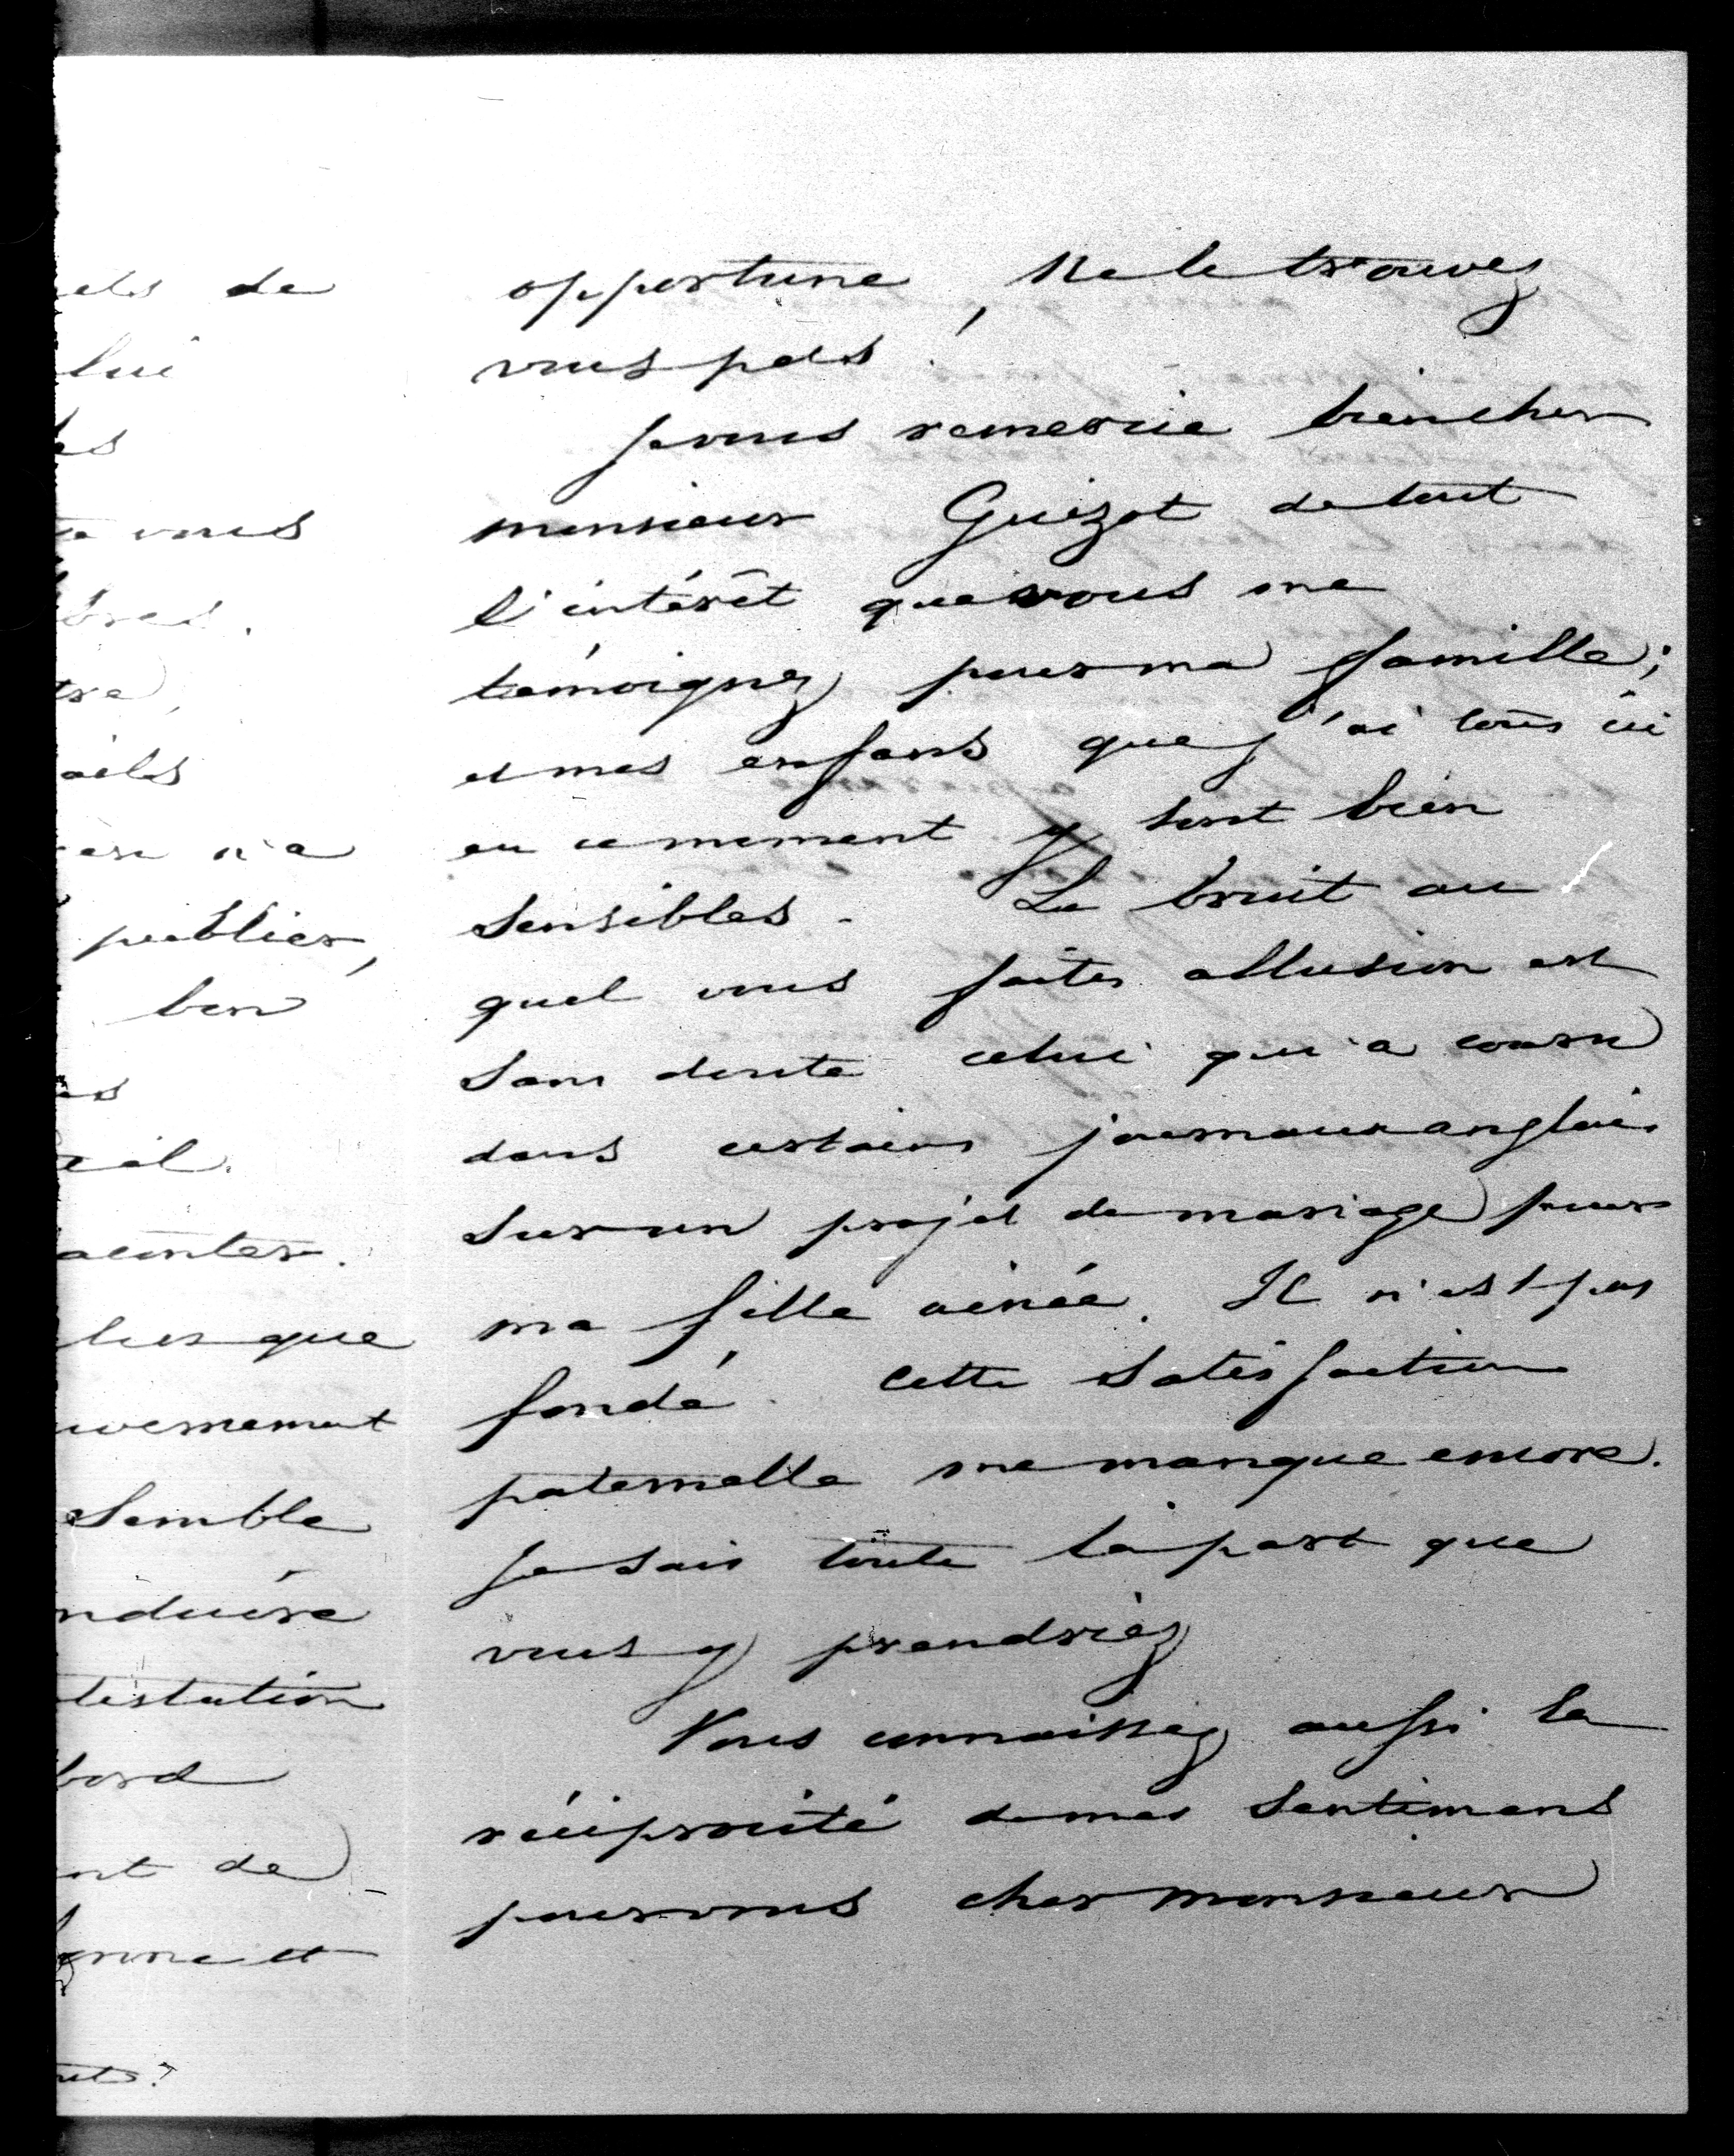 els de
lui
es
vous
bres.
tre,
ails
n'a
publier,
bon
es
acontes.
lus que
uvernement
Semble
nduire
testation
bord
nt de
opportune, Ne le trouvez
vous pas!
Je vous remercie bien cher
monsieur Guizot de tout
l'intérêt que vous me
témoignez pour ma famille;
et mes enfans que j'ai tous ici
en ce moment y sont bien
Sensibles. Le bruit au
quel vous faites allusion est
Sans doute celui qui a couru
dans certains journaux anglais
Sur un projet de mariage pour
ma fille ainée. Il n'est pas
fondé. Cette Satisfaction
paternelle me manque encore.
Je Sais toute la part que
vous y prendriez
Vous connaissez aussi la
réciprocité de mes Sentimens
pour vous cher monsieur